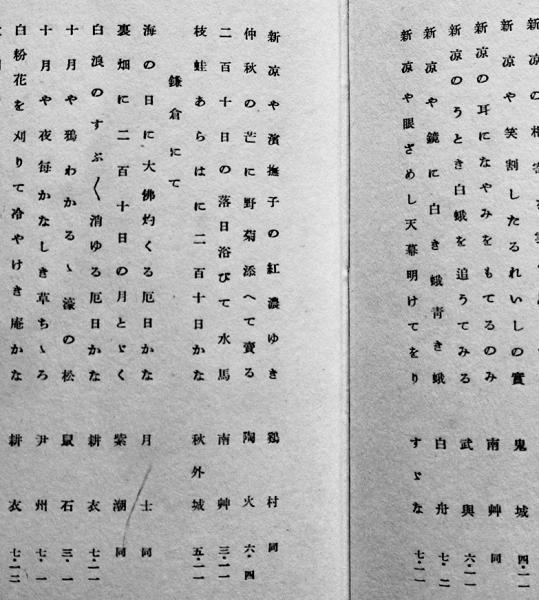 新涼や笑割したるれいしの實 鬼城 四・一一
新涼の耳になやみをもてるのみ 南艸 同
新涼のうとき白蛾を追うてみる 武與 六・一一
新涼や鏡に白き蛾青き蛾 白舟 七・一二
新涼や眼ざめし天幕明けてをり すゞな 七・一一
新涼や濱撫子の紅濃ゆき 鶏村 同
仲秋の芒に野菊添へて賣る 陶火 六・四
二百十日の落日浴びて水馬 南艸 三・一一
枝蛙あらはに二百十日かな 秋外城 五・一一
鎌倉にて
海の日に大佛灼くる厄日かな 月士 同
裏畑に二百十日の月とゞく 紫潮 同
白浪のすぶ〱消ゆる厄日かな 耕衣 七・一一
十月や鴉わかるゝ濠の松 鼠石 三・一
十月や夜每かなしき草ちゝろ 尹州 七・一
白粉花を刈りて冷やけき庵かな 耕衣 七・一二